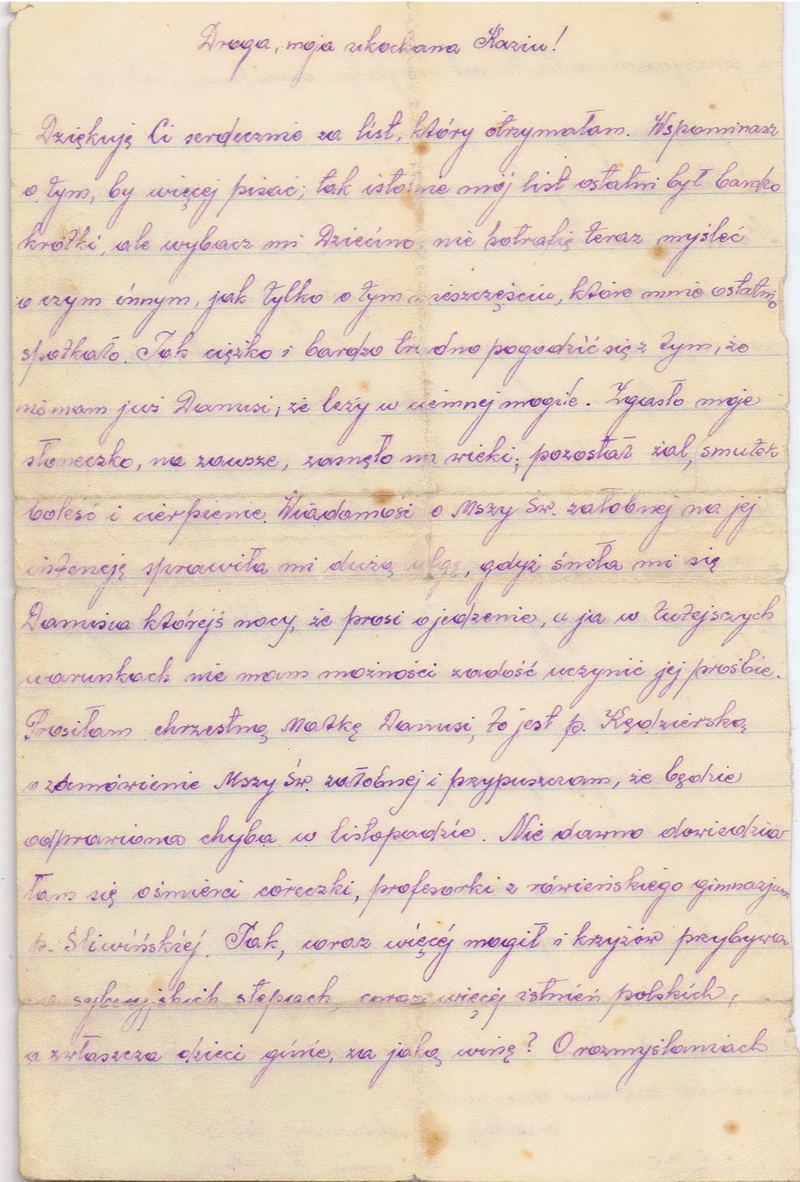 Droga, moja ukochana Kaziu!
Dziękuję Ci serdecznie za list, który otrzymałam. Wspominasz
o tym, by więcej pisać; tak istotnie mój list ostatni był bardzo
krótki, ale wybacz mi Dziecino nie potrafię teraz myśleć
o czym innym, jak tylko o tym nieszczęściu, które mnie ostatnio
spotkało. Tak ciężko i bardzo trudno pogodzić się z tym, że
nie mam już Danusi, że leży w ciemnej mogile. Zgasło moje
słoneczko, na zawsze, zasnęło na wieki; pozostał żal, smutek
boleść i cierpienie. Wiadomość o Mszy Św. żałobnej na jej
intencję sprawiła mi dużą ulgę, gdyż śniła mi się
Danusia którejś nocy, że prosi o jedzenie, a ja w tutejszych
warunkach nie mam możności zadość uczynić jej prośbie.
Prosiłam chrzestną Matkę Danusi, to jest p. Kędzierską
o zamówienie Mszy Św. żałobnej i przypuszczam, że będzie
odprawiona chyba w listopadzie. Nie dawno dowiedzia
łam się o śmierci córeczki, profesorki z rówieńskiego gimnazjum
p. Śliwińskiéj. Tak, coraz więcéj mogił i krzyżów przybywa
na syberyjskich stepach, coraz więcéj istnień polskich,
a zwłaszcza dzieci ginie, za jaką winę? O rozmyślaniach